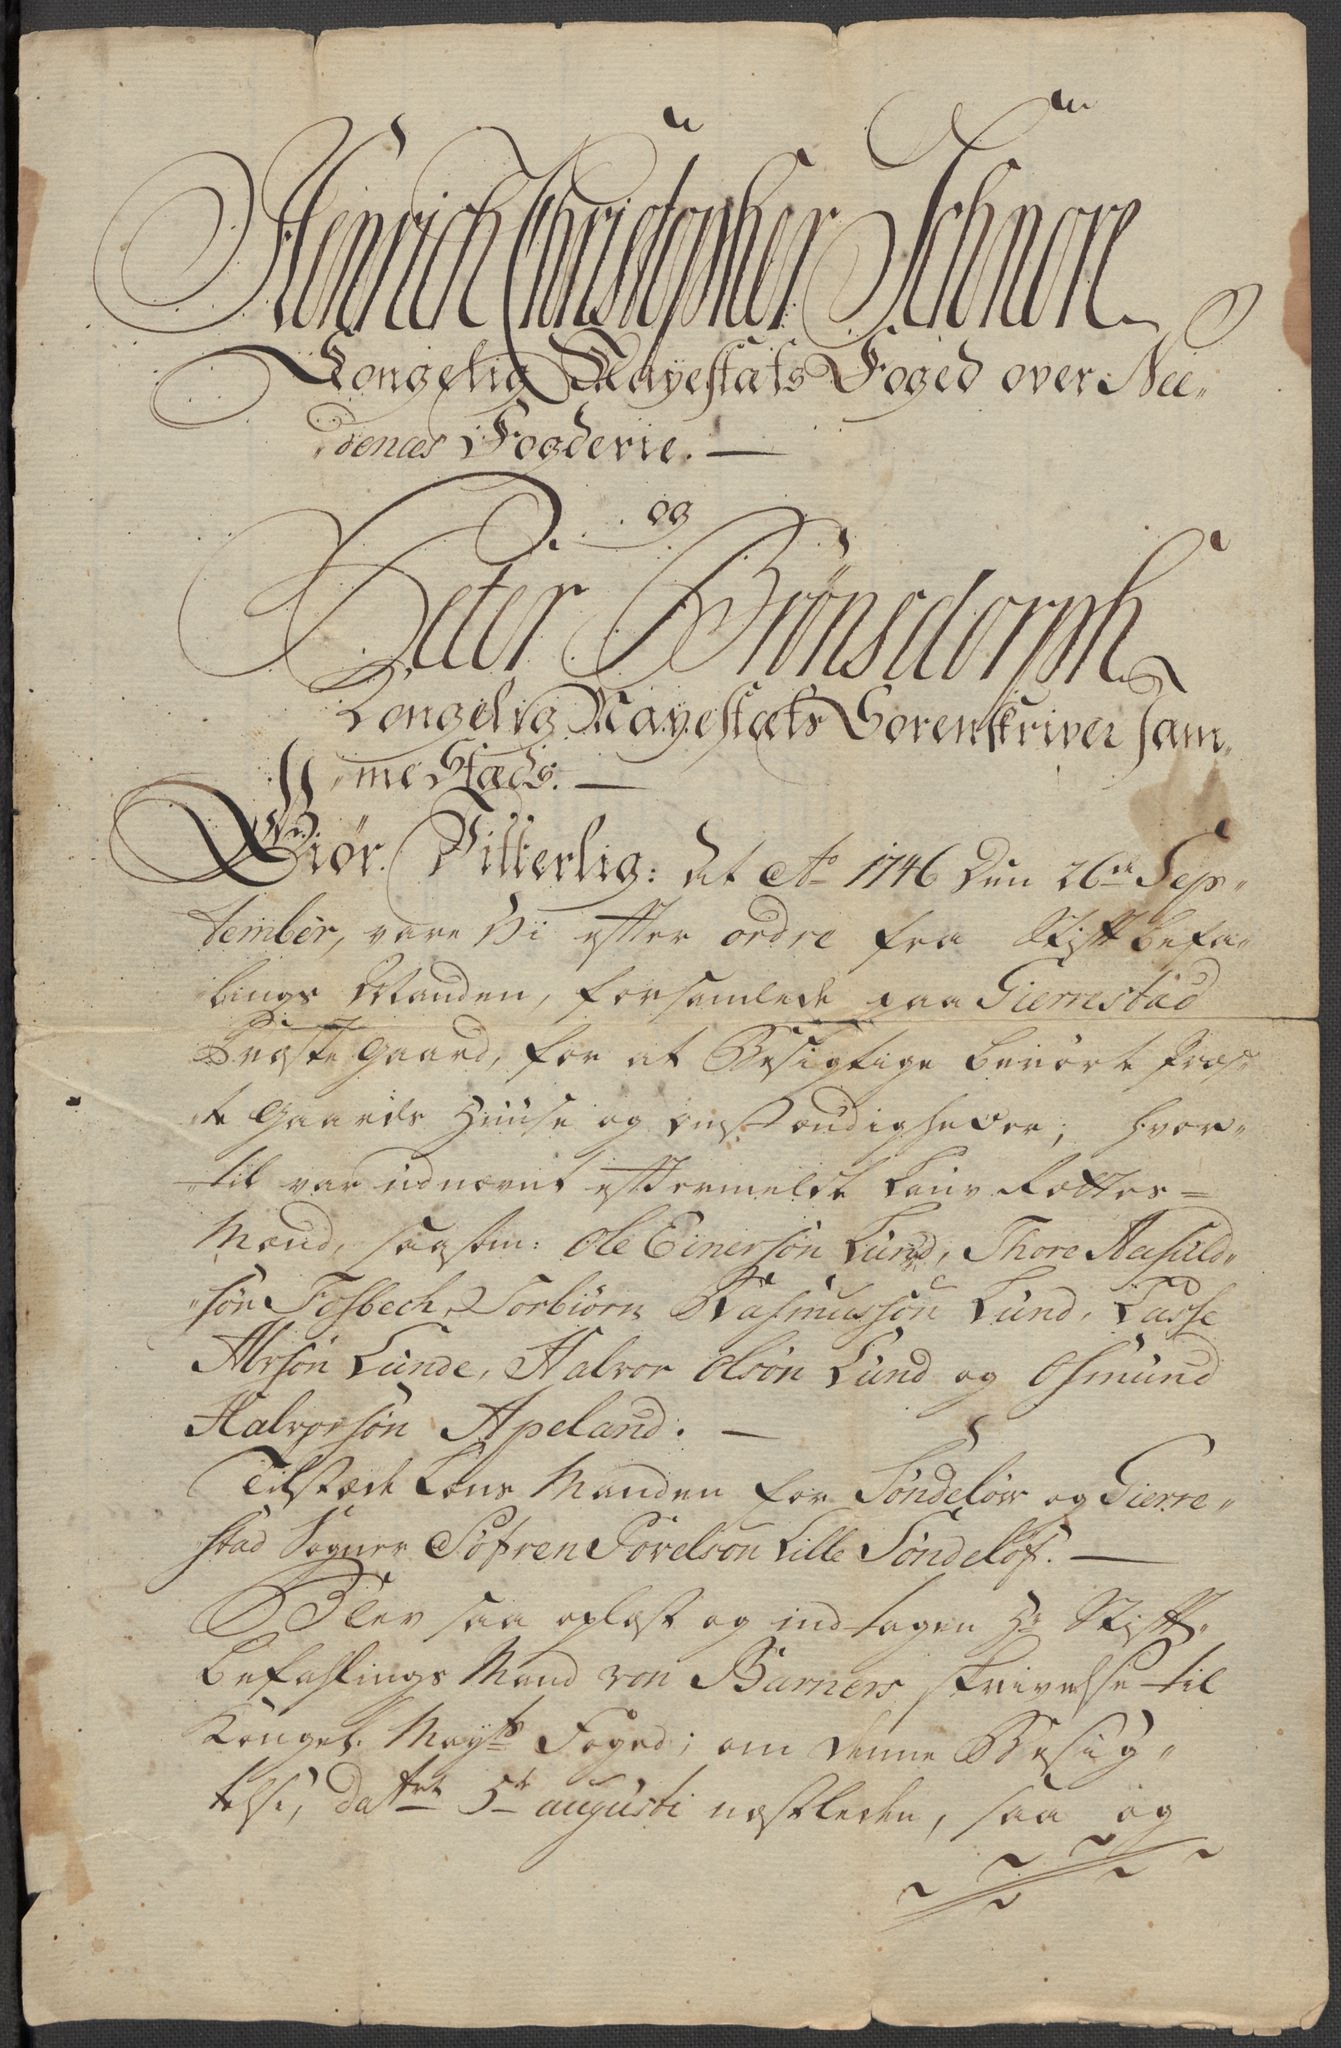 Henrich Christopher Schnore
Kongelig Mayestæts Foged over Nee„
„denæs Fogderie. —
og
Peter Brönsdorph
Kongelig Mayestæts Sorenskriver sam„
„me Stæds. —
Giør Vitterlig: at Ao 1746 Den 26de Sep„
tember, vare Vi efter ordre fra Stift befa„
„lings Manden, forsamlede paa Gierrestad
Præste gaard, for at Besigtige berörte Præs„
„te Gaards Huuse og omstændigheder; hvor„
„til var udnævnt efftermeldte Laug Rættes=
Mænd, saasom: Ole Einersön Lund, Thore Aasuld„
„sön Fosbech, Torbiörn Rasmussön Lund, Tasse
Alvsön Lunde, Halvor Olsön Lund og Osmund
Halvorsön Apeland. —
Tilstæde Lens Manden for Söndelöw og Gierre„
„stad Sogner Söfren Torelsön Lille Söndelöf. —
Blev saa oplæst og indtagen Hr Stifft„
befahlings Mand von Barners skrivelse til
Kongel. Mayts Foged; om denne Besig„
telse, datert 5te augusti næstleden, saa og